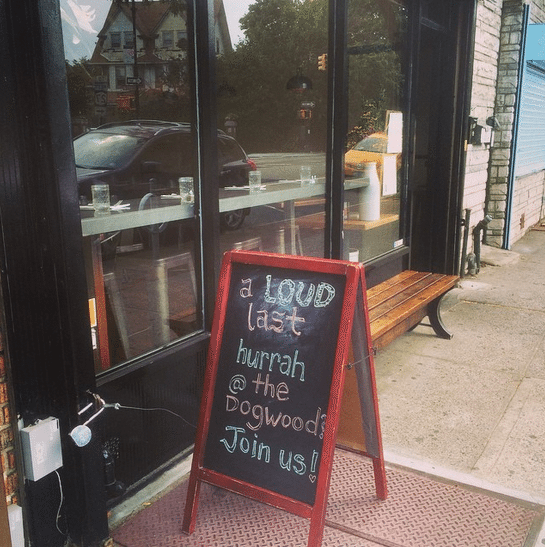 a LOUD
last
hurrah
@ the
Dogwood!
Join us!